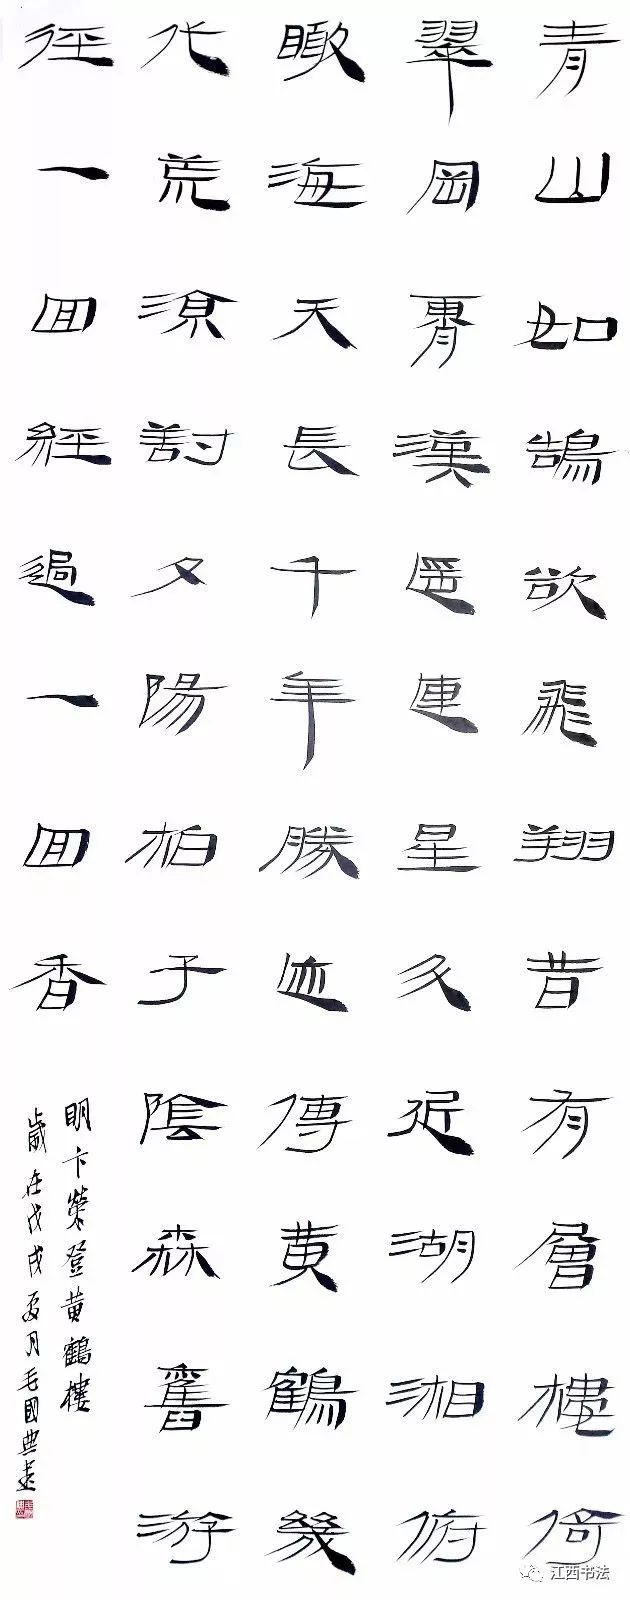 青山如鵠欲飛翔昔有層樓倚
翠岡霄漢連星斗近湖湘俯
瞰海天長千年勝迹傳黄鶴幾
代荒凉對夕陽柏子陰森舊游
徑一回經過一回香
明卞榮登黄鶴樓
歲在戊戌夏月毛國典書
江西书法